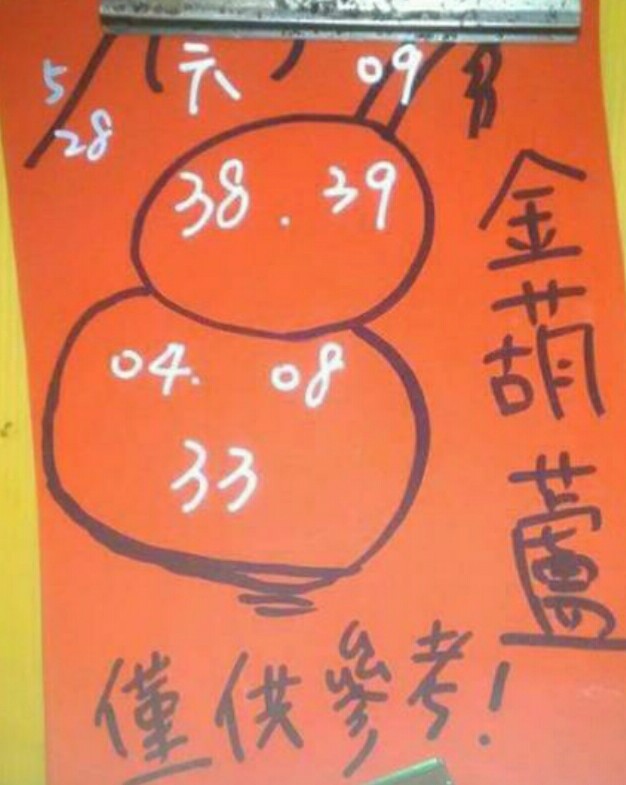 5/28 (六) 09
38 . 39
04. 08
33
金葫蘆
僅供參考!